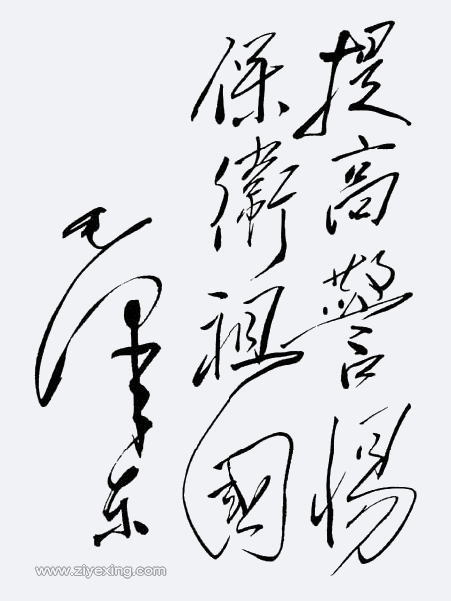 提高警惕
保衛祖國
毛澤东
www.ziyexing.com